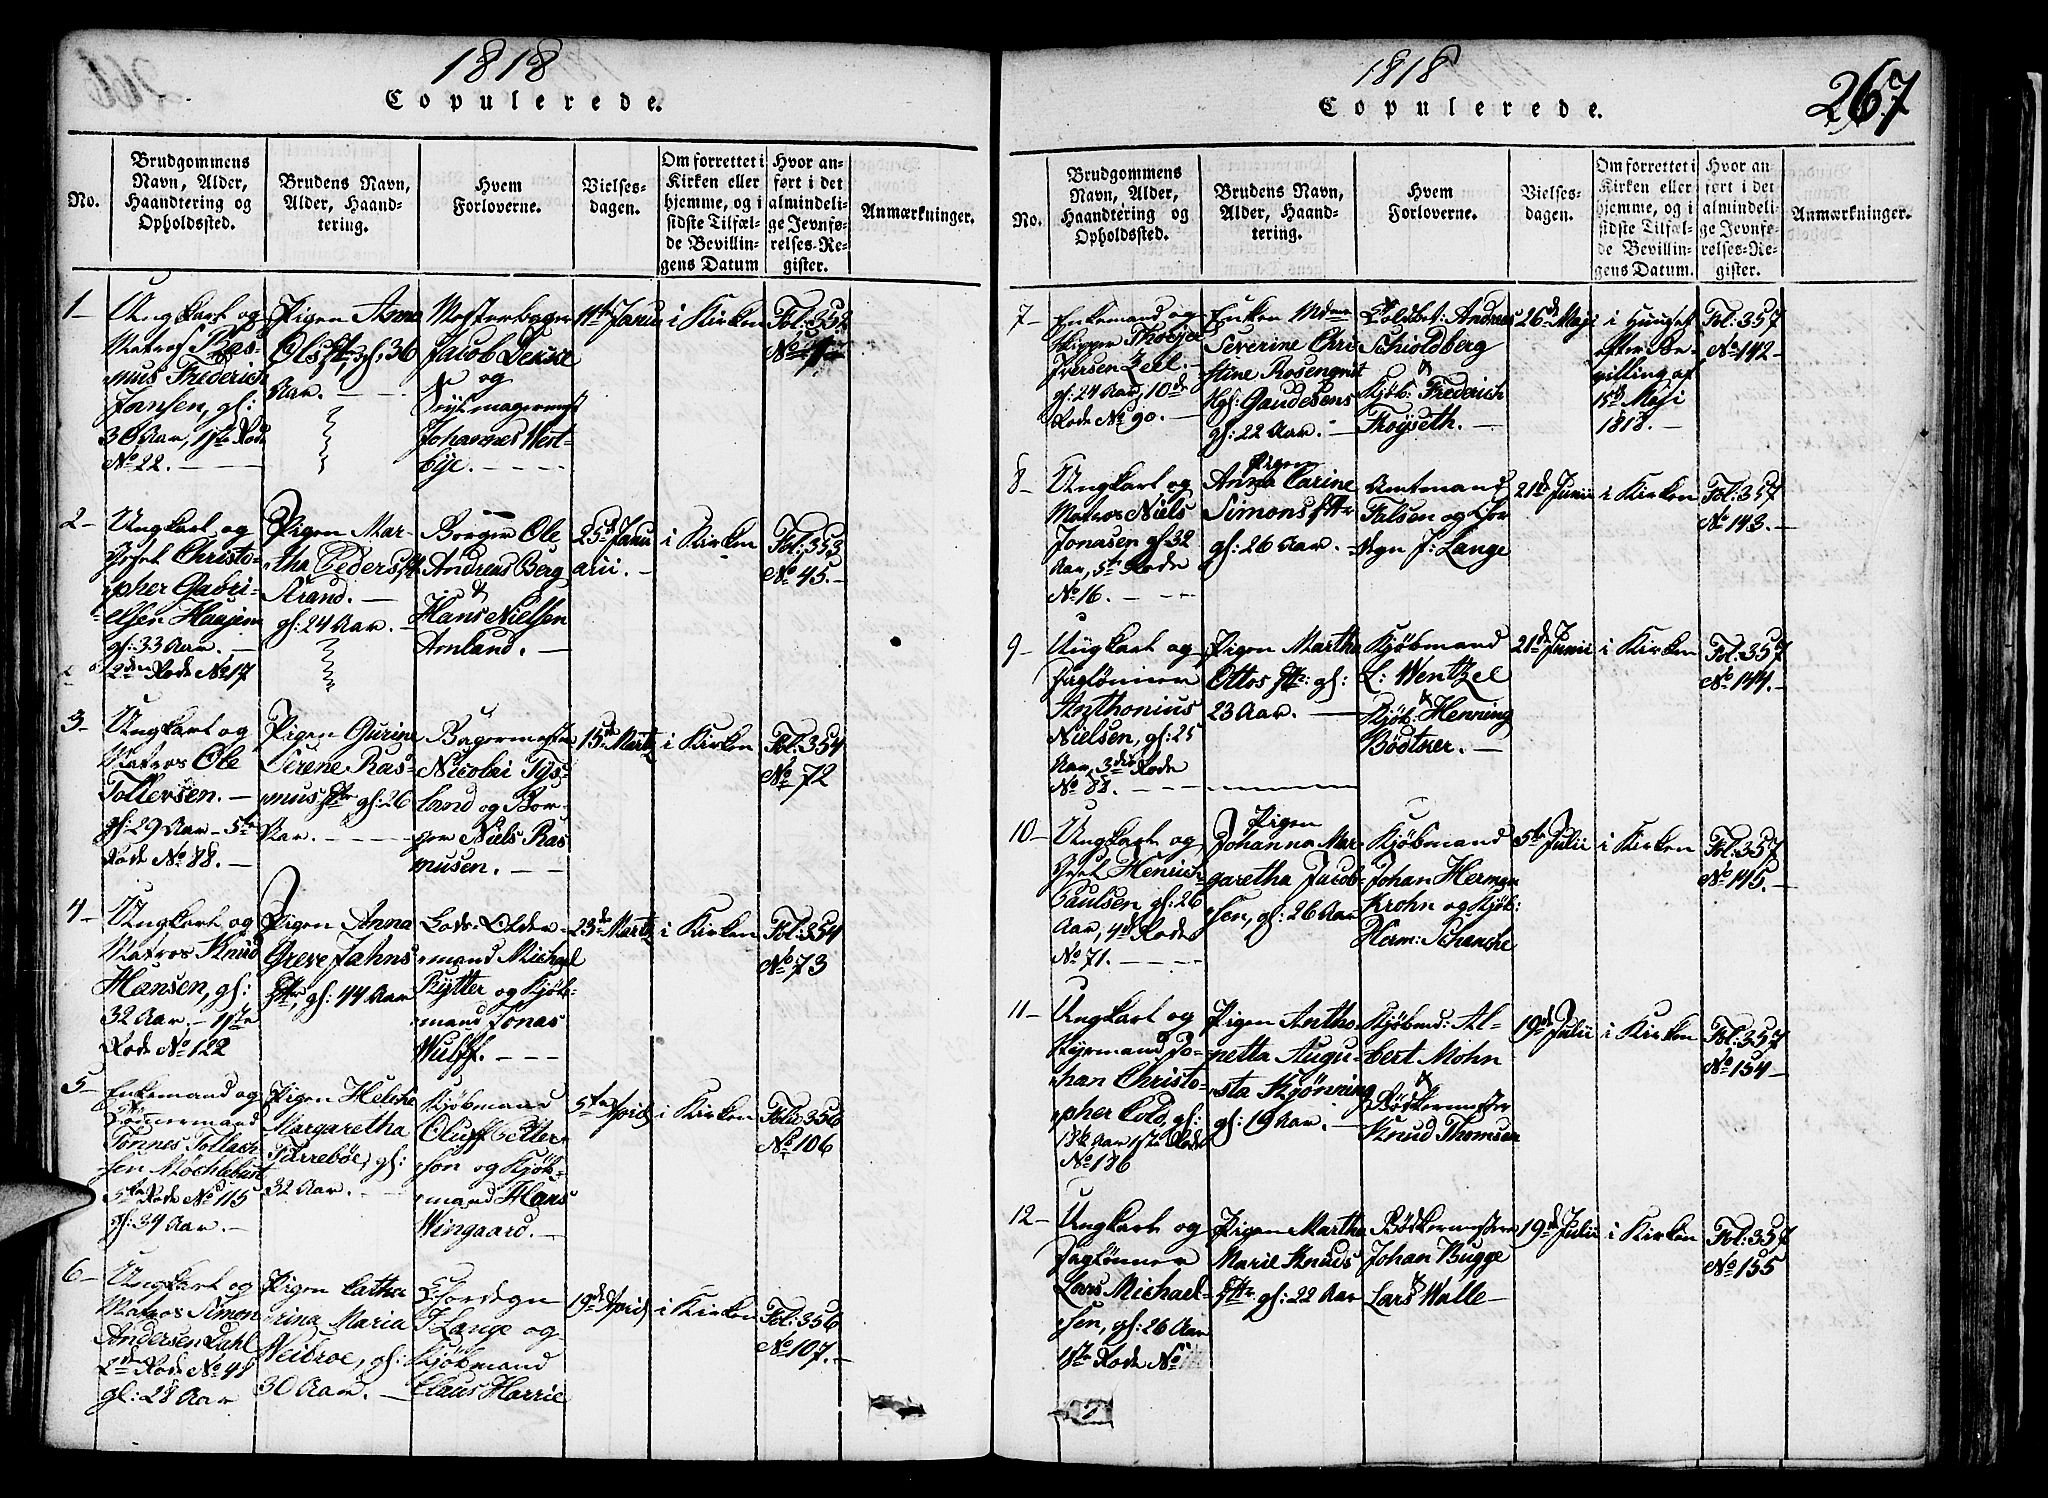 1818
Copulerede.
No.
Brudgommens
Navn, Alder,
Haandtering og
Opholdssted.
Brudens Navn,
Alder, Haand-
tering.
Hvem
Forloverne.
Vielses-
dagen.
Om forrettet i
Kirken eller
hjemme, og i
sidste Tilfæl-
de Bevillin-
gens Datum
Hvor an-
ført i det
almindeli-
ge Jevnfø-
relses-Re-
gister.
Anmærkninger.
1-
Ungkarl og
Matros Ras-
mus Frederich
Jansen, gl:
30 Aar, 1ste Rode
No 22.
Pigen Anna
Olsdtr, gl. 36
Aar.
Jacob
og
Johannes West-
bye.
11te Janu
i Kirken
Fol: 352
No
2-
Ungkarl og
Christo-
pher Gabri-
elsen Haagen
gl: 33 Aar.
2den Rode No 17
Pigen Mar-
tha Peders
Strand.
gl: 24 Aar.
Borger Ole
Andreas Berg
&
Hans Nielsen
Arnland.
25de Janu
arii.
i Kirken
Fol: 353
No 45.
3-
Ungkarl og
Matros Ole
Tollersen.
gl: 29 Aar - 5te
Rode No 88.
Pigen Gurine
Sirene Ras-
mus dtr gl: 26
Aar.
Bagermester
Nicolai Tys-
land og Bor-
ger Niels Ras
musen.
15de Martz
i Kirken
Fol: 354
No 72
4-
Ungkarl og
Matros Knud
Hansen, gl:
32 Aar. - 1ste
Rode No 122
Pigen Anna
Greve Jahns
dtr, gl: 44 Aar
Lods-Older-
mand Michael
Rytter og Kjøb-
mand Jonas
Wulff.
23de Martz
i Kirken
Fol: 354
No 73
5-
Enkemand og
Tømmermand
Tønnes Tollach
sen Møchlebust
5te Rode No 115
gl: 34 Aar.
Pigen Helche
Margaretha
Farrebøe, gl:
32 Aar.
Kjøbmand
Oluff Petter-
son og Kjøb-
mand Hans
Wingaard.
5te April
i Kirken
Folio 356
No 106
6-
Ungkarl og
Matros Simon
Andersen Dahl
2den Rode No 48
gl: 28 Aar
Pigen Catha
rina Maria
Weibroe, gl:
30 Aar.
Chordegn
J. Lange og
Kjøbmand
Claus Harrie
19de April
i Kirken
Fol: 356
No 107.
1818
Copulerede.
267
No.
Brudgommens
Navn, Alder,
Haandtering og
Opholdssted.
Brudens Navn,
Alder, Haand-
tering.
Hvem
Forloverne.
Vielses-
dagen.
Om forrettet i
Kirken eller
hjemme, og i
sidste Tilfæl-
de Bevillin-
gens Datum.
Hvor an
ført i det
almindeli-
ge Jevnfø-
relses-Re-
gister.
Anmærkninger.
7-
Enkemand og
Skipper
Iversen Zeel.
gl: 24 Aar, 10de
Rode No 90.
Enken
Severine Chri
stine Rosenqvist
Gaudesens
gl: 22 Aar.
Andreas
Schioldberg
&
Kjøb: Frederich
Frøyseth.
26de Maji
i Huuset
efter Be-
villing af
15de Maji
1818.
Fol: 357
No 142
8-
Ungkarl og
Matros Niels
Jonasen gl: 32
Aar, 5te Rode
No 16.
Pigen
Anna Carine
Simonsdtr
gl: 26 Aar.
Amtmand
Falsen og Chor
degn J: Lange
21de Junii
i Kirken
Fol: 357
No 143.
9-
Ungkarl og
Daglønner
Anthonius
Nielsen, gl: 25
Aar, 3die Rode
No 88.
Pigen Martha
Ottosdtr: gl:
23 Aar.
Kjøbmand
L: Wentzel
&
Kjøb: Henning
Bødtker.
21de Junii
i Kirken
Fol: 357
No 144.
10-
Ungkarl og
Henrich
Paulsen, gl: 26
Aar, 4de Rode
No 71.
Pigen
Johanna Mar-
garetha Jacob-
sen, gl: 26 Aar
Kjøbmand
Johan Herman
Krohn og Kjøb:
Herm: Schanche
5te Julii
i Kirken
Fol: 357
No 145.
11-
Ungkarl og
Styrmand Jo-
han Christo-
pher Cold, gl:
Aar 1ste Rode
No 136
Pigen Antho
netta Augu-
sta Kjønning
gl: 19 Aar.
Kjøbmd: Al-
bert Mohn
&
Bødkermester
Knud Thomsen
19de Julii
i Kirken
Fol: 357
No 154
12-
Ungkarl og
Daglønner
Lars Michael-
sen, gl: 26 Aar
1ste Rode No
Pigen Martha
Marie Knuds
dtr gl: 22 Aar
Bødkermester
Johan Bugge
&
Lars Walle
19de Julii
i Kirken
Fol: 357
No 155